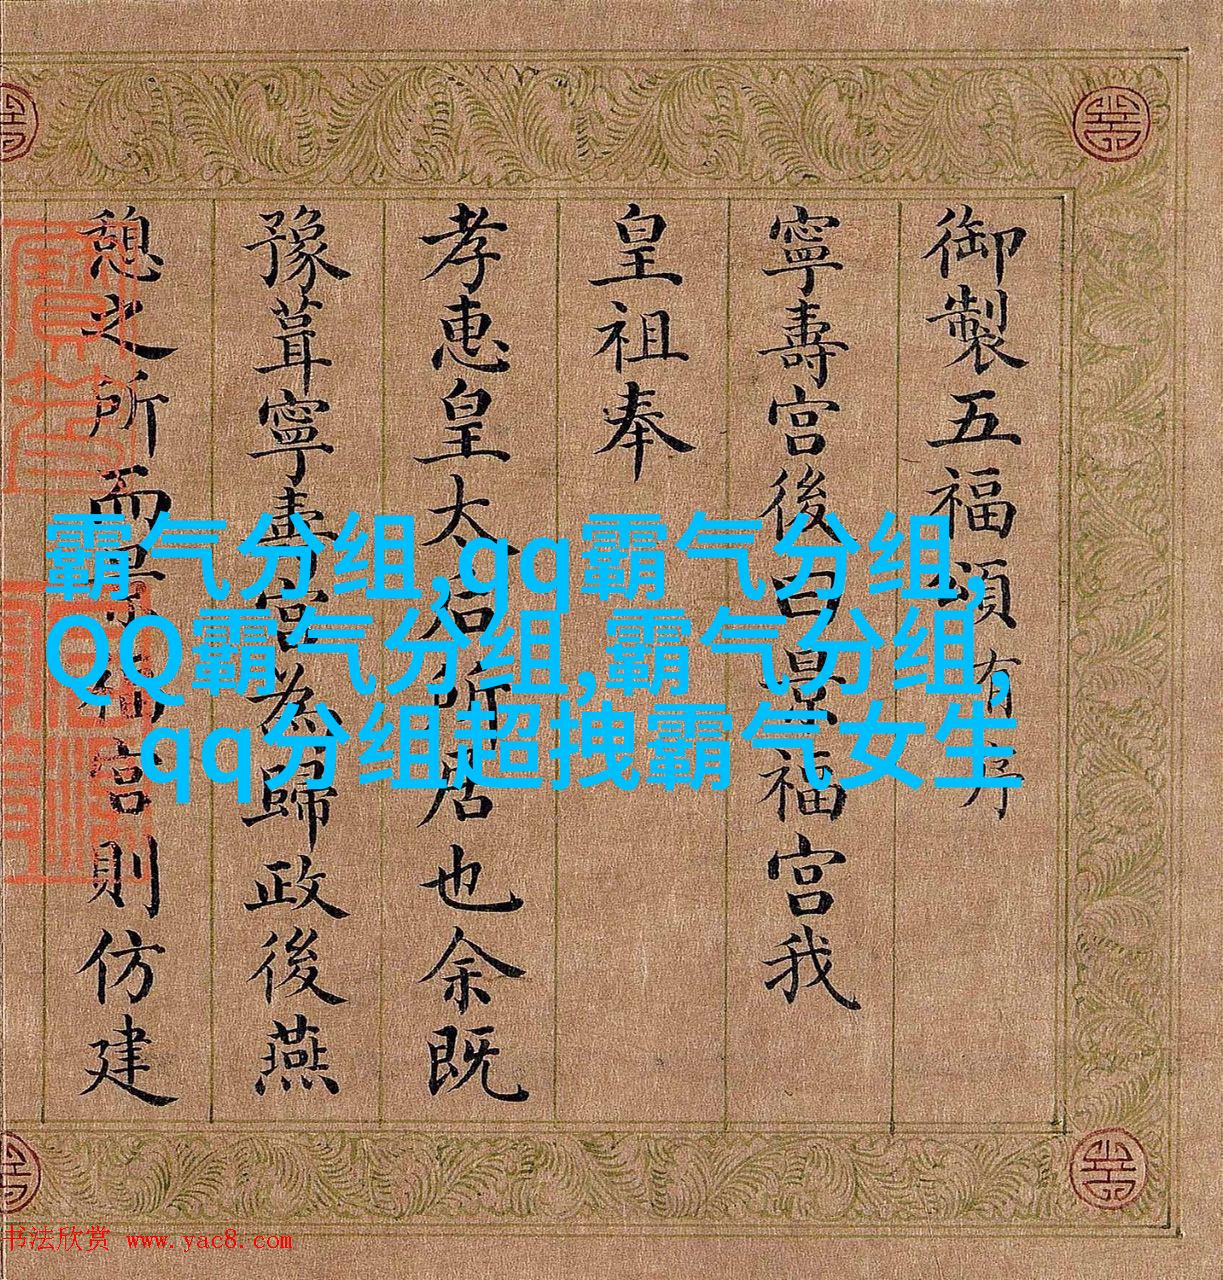 御製五福頌有序
寧壽宮後曰景福宮我
皇祖奉
孝惠皇太后所居也余既
豫葺寧壽宮為歸政後燕
憩之所而景福宮則仿建
霸气分组,qq霸气分组,
QQ霸气分组,霸气分组,
qq分组超拽霸气女生
书法欣赏 www.yac8.com